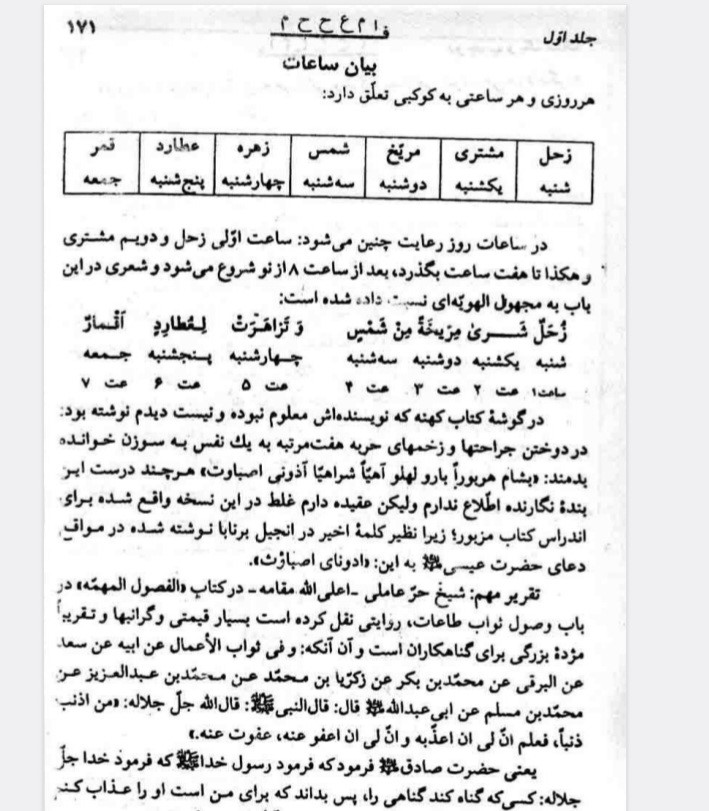 جلد اوّل
۱۷۱
بیان ساعات
هرروزی و هر ساعتی به کوکبی تعلّق دارد:
زحل مشتری مرّیخ شمس زهره عطارد قمر
شنبه یکشنبه دوشنبه سه‌شنبه چهارشنبه پنج‌شنبه جمعه
در ساعات روز رعایت چنین می‌شود: ساعت اوّلی زحل و دویم مشتری
و هکذا تا هفت ساعت بگذرد، بعد از ساعت ۸ از نو شروع می‌شود و شعری در این
باب به مجهول الهویّه‌ای نسبت داده شده است:
زُحَلٌ شَــرىٰ مِرّیخَهُ مِنْ شَمْسٍ وَ تَزاهَرَتْ لِعُطارِدٍ اَقْمارٌ
شنبه یکشنبه دوشنبه سه‌شنبه چهارشنبه پنجشنبه جمعه
ساعت۱ عت ۲ عت ۳ عت ۴ عت ۵ عت ۶ عت ۷
در گوشهٔ کتاب کهنه که نویسنده‌اش معلوم نبوده و نیست دیدم نوشته بود:
در دوختن جراحتها و زخمهای حربه هفت‌مرتبه به یك نفس به سوزن خوانده
بدمند: «یشام هربوراً بارو لهلو آهیّاً شراهیّا آذونی اصباوت» هرچند درست این
بندهٔ نگارنده اطّلاع ندارم ولیکن عقیده دارم غلط در این نسخه واقع شده برای
اندراس کتاب مزبور؛ زیرا نظیر کلمهٔ اخیر در انجیل برنابا نوشته شده در مواقع
دعای حضرت عیسی به این: «ادونای اصباؤث».
تقریر مهم: شیخ حرّ عاملی -اعلی‌الله مقامه- در کتاب «الفصول المهمّه» در
باب وصول ثواب طاعات، روایتی نقل کرده است بسیار قیمتی و گرانبها و تقریباً
مژدهٔ بزرگی برای گناهکاران است و آن آنکه: و فی ثواب الأعمال عن ابیه عن سعد
عن البرقی عن محمّدبن بکر عن زکرّیا بن محمّد عن محمّدبن عبدالعزیز عن
محمّدبن مسلم عن ابی‌عبدالله قال: قال‌النبی: قال‌الله جلّ جلاله: «من اذنب
ذنباً، فعلم انّ لی ان اعذّبه و انّ لی ان اعفو عنه، عفوت عنه.»
یعنی حضرت صادق فرمود که فرمود رسول خدا که فرمود خدا جلّ
جلاله: کسی‌که گناه کند گناهی را، پس بداند که برای من است او را عذاب کنم